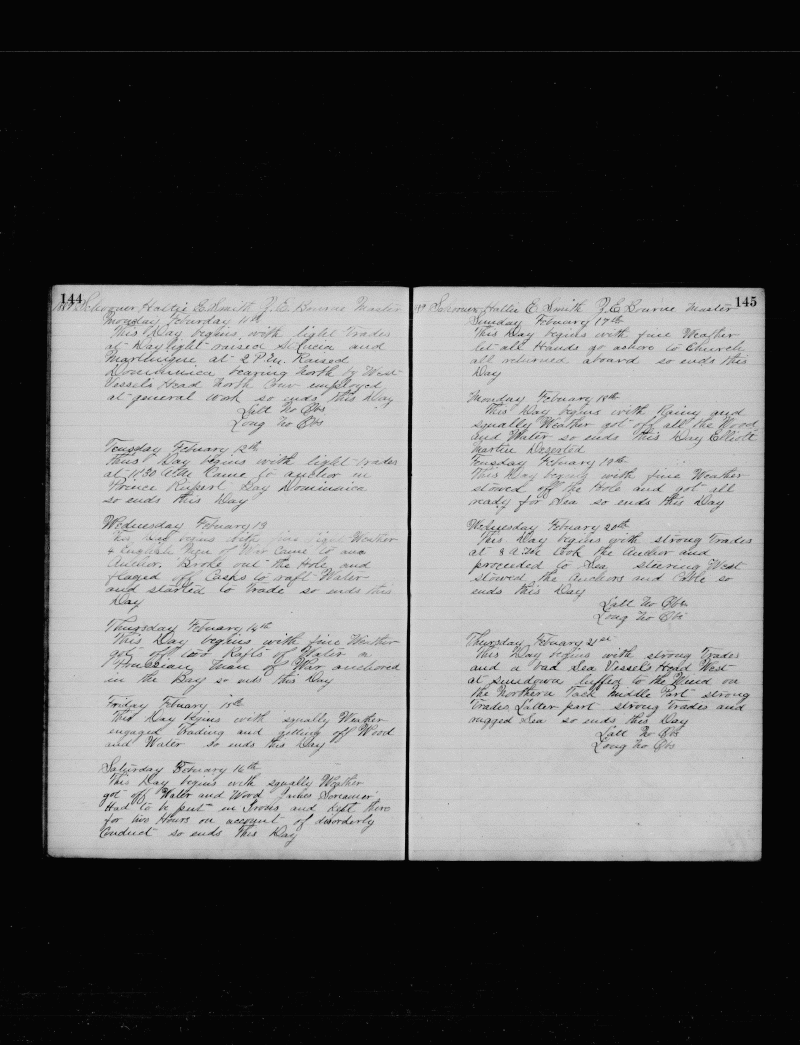 144
Schooner Hattie E Smith J. E. Bourne Master
Monday Feburary 11th
This Day begins with light Trades
at Daylight raised St Lucia and
Martinique at 2 P.M. Raised
Dominnica bearing North by West
Vessels Head North Crew employed
at general work so ends this Day
Latt No Obs
Long No Obs
Teusday Febuary 12th
This Day begins with light trades
at 11.30 A.M. Came to anchor in
Prince Rupert Bay Dominica
so ends this Day
Wednesday Febuary 13
This Day begins with fine light Weather
4 English Men of War Came to and
Anchor. Broke out the Hole and
flaged off Casks to raft Water
and started to trade so ends this
Day
Thursday Febuary 14th
This Day begins with fine Weather
got off two Rafts of Water a
Prussian man of War anchored
in the Bay so ends this Day
Friday Febuary 15th
This Day begins with squally Weather
engaged trading and getting off Wood
and Water so ends this Day
Saturday Febuary 16th
This Day begins with squally Weather
got off Water and Wood James Screamer
Had to be put in Irons and kept there
for two Hours on account of disorderly
Conduct so ends this Day
145
Schooner Hattie E. Smith J. E. Burne Master
Sunday Febuary 17th
This Day begins with fine Weather
let all Hands go ashore to Church
all returned aboard so ends this
Day
Monday Febuary 18th
This Day begins with Rainy and
squally Weather got off all the Wood
and Water so ends this Day Elliott
Martin Deserted
Teusday Febuary 19th
This Day begins with fine Weather
stowed off the Hole and got all
ready for Sea so ends this Day
Wednesday Febuary 20th
This Day begins with strong Trades
at 8 A.M. took the Anchor and
proceeded to Sea steering West
stowed the Anchors and Cable so
ends this Day
Latt No Obs
Long No Obs
Thursday Febuary 21st
This Day begins with strong Trades
and a bad Sea Vessels Head West
at sundown luffed to the Wind on
the Northern Tack Middle Part strong
Trades Latter part strong Trades and
rugged Sea so ends this Day
Latt No Obs
Long No Obs